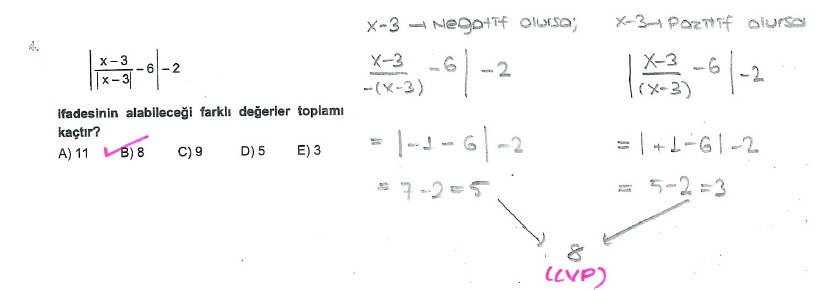 4.
| x-3 / |x-3| - 6 | - 2
ifadesinin alabileceği farklı değerler toplamı
kaçtır?
A) 11 B) 8 C) 9 D) 5 E) 3
x-3 → Negatif olursa;
x-3 / -(x-3) - 6 | - 2
= |-1-6| - 2
= 7-2=5
x-3→ Pozitif olursa
| x-3 / (x-3) - 6 | -2
= |+1-6| -2
= 5-2=3
8
(CVP)